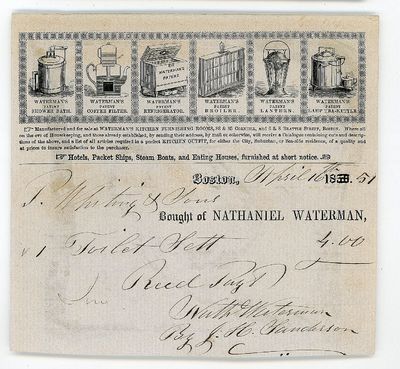 WATERMAN'S PATENT SHOWER BATH.
WATERMAN'S PATENT COFFEE FILTER.
WATERMAN'S PATENT REFRIGERATOR.
WATERMAN'S PATENT BROILER.
WATERMAN'S PATENT LANTERN.
WATERMAN'S PATENT
Manufactured and for sale at WATERMAN'S KITCHEN FURNISHING ROOMS, 83 & 85 CORNHILL, and 6 & 8 BRATTLE STREET, BOSTON. Where all
on the eve of Housekeeping, and those already established, by sending their address, by mail or otherwise, will receive a Catalogue containing cuts and descrip-
tions of the above, and a list of all articles required in a perfect KITCHEN OUTFIT, for either the City, Suburban, or Sea-side residence, of a quality and
at prices to insure satisfaction to the purchaser.
Hotels, Packet Ships, Steam Boats, and Eating Houses, furnished at short notice.
Boston, April 16th 18 51
J. Whiting & Sons
Bought of NATHANIEL WATERMAN,
1 Toilet Sett 4.00
Recd Payt
Nath Waterman
By J. H. Sanderson